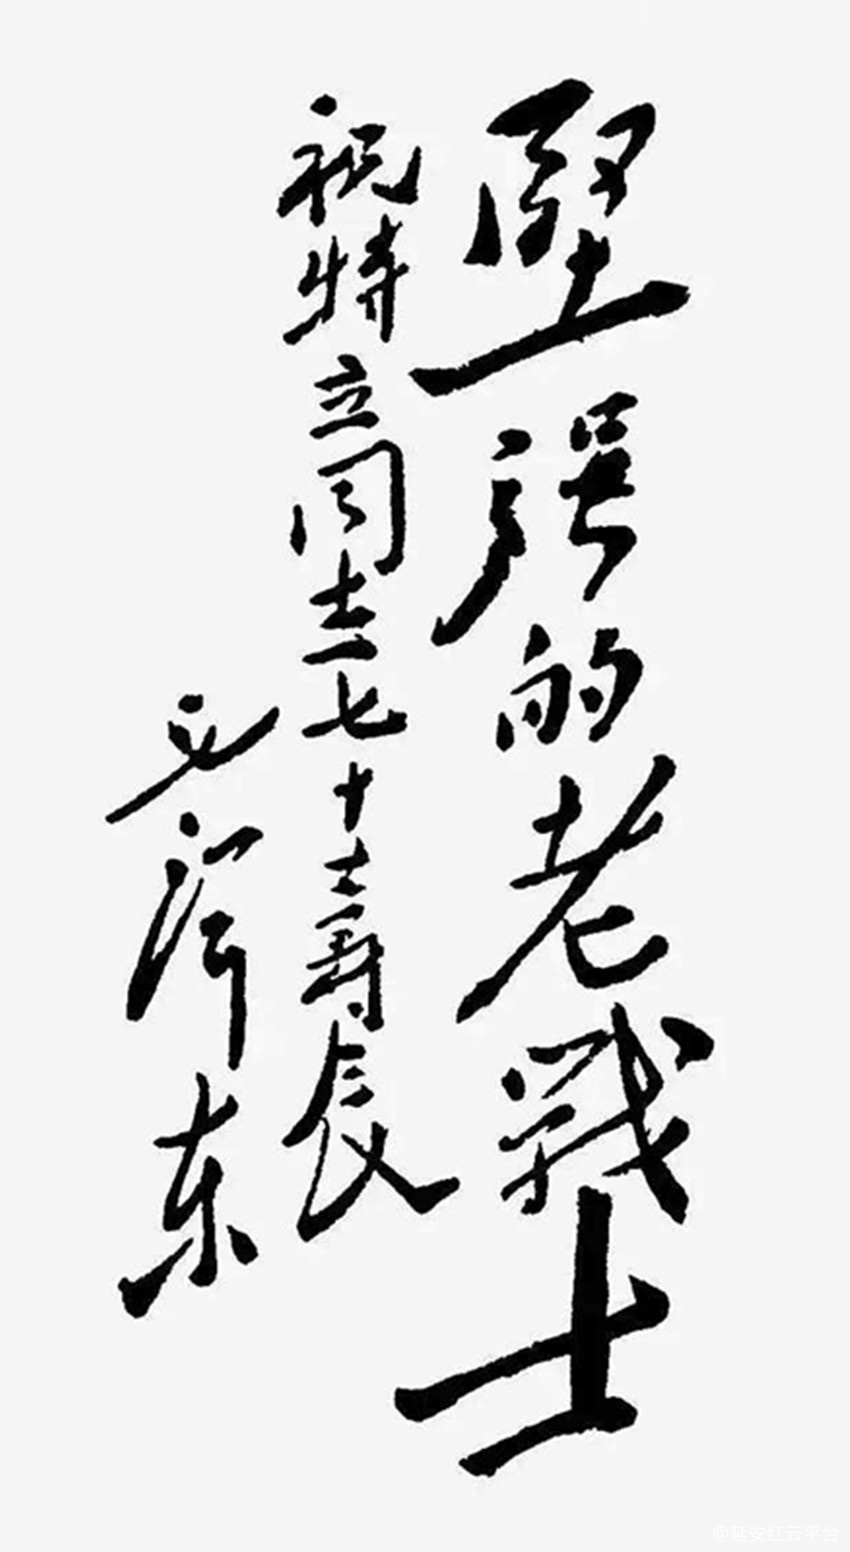 堅强的老戰士
祝特立同志七十大壽辰
毛澤东
@延安红云平台